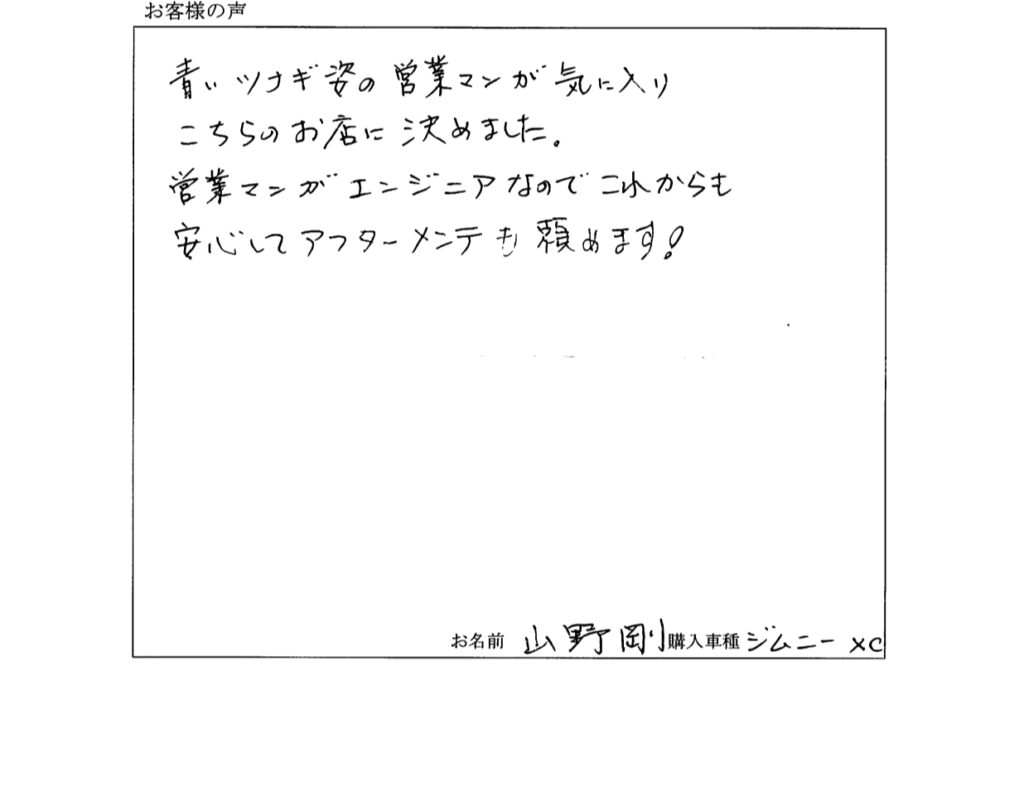 お客様の声
青いツナギ姿の営業マンが気に入り
こちらのお店に決めました。
営業マンがエンジニアなのでこれからも
安心してアフターメンテも頼めます!
お名前 山野剛 購入車種 ジムニー XC